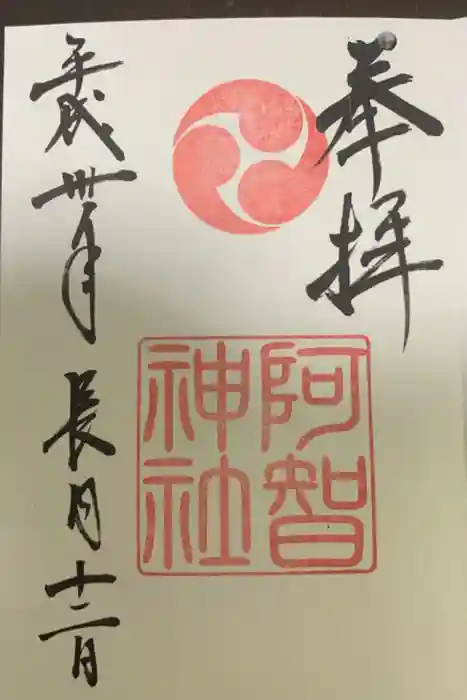 奉拝
阿智
神社
平成卅年長月十二日